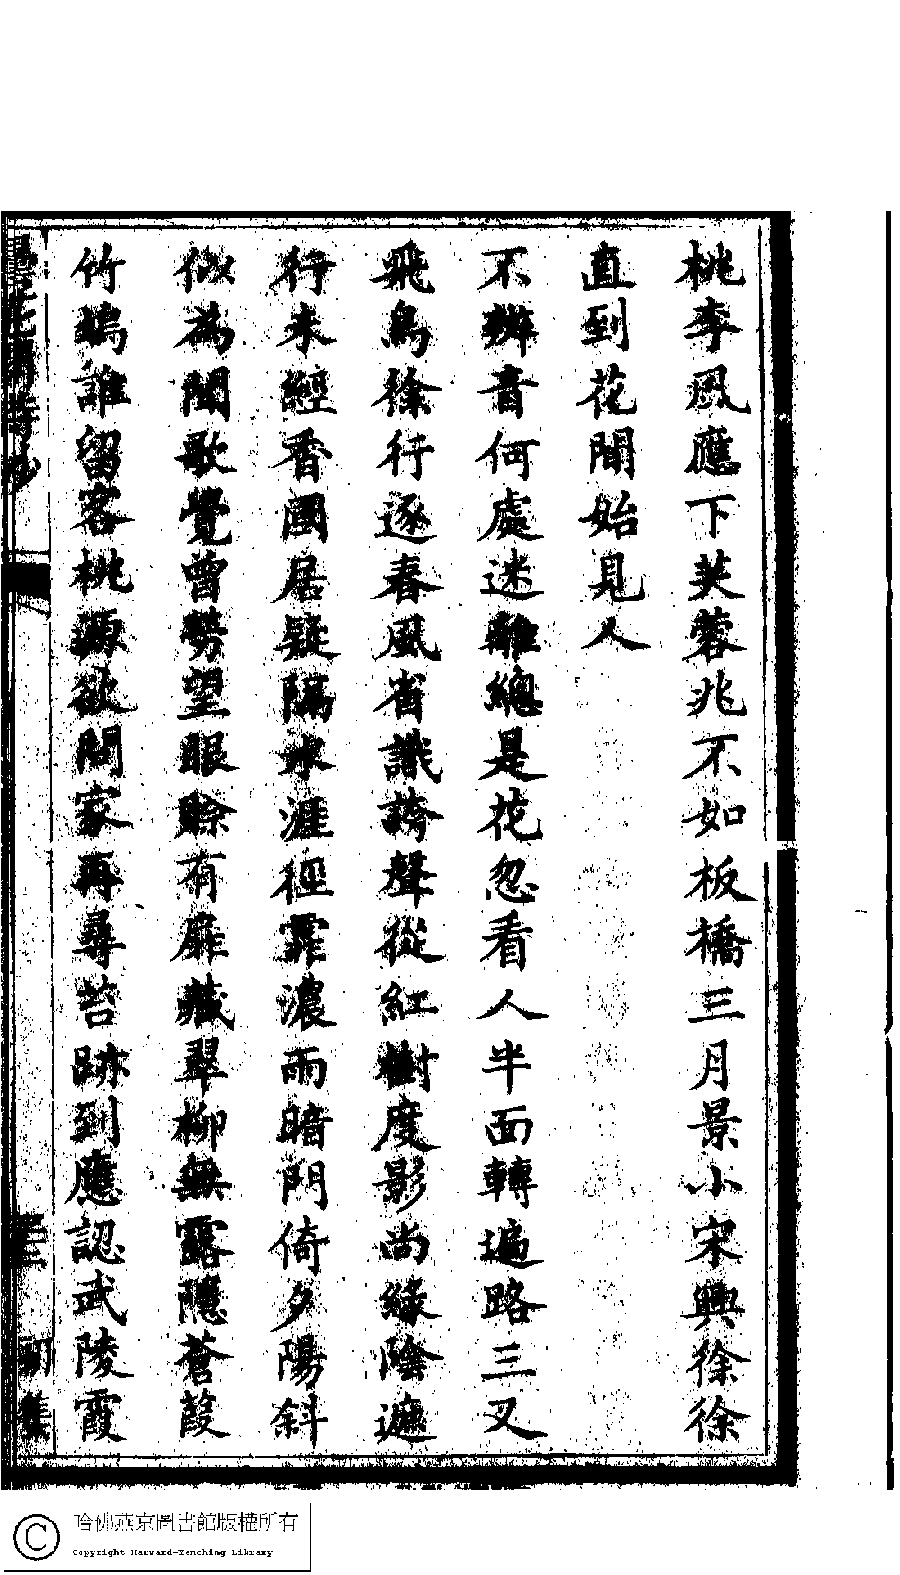 桃李風應下芙蓉兆不如板橋三月景小宋興徐徐
直到花開始見人
不辨音何處迷離總是花忽看人半面轉遍路三叉
飛鳥徐行逐春風省識誇聲從紅樹度影尚綠陰遮
行未經香國居疑隔水涯徑霏濃雨暗門倚夕陽斜
似為聞歌覺曾勞望眼賒有扉藏翠柳無露隱蒼葭
竹塢誰留客桃源欲問家再尋苔跡到應認武陵霞
初集
哈佛燕京圖書館版權所有
Copyright Harvard-Yenching Library